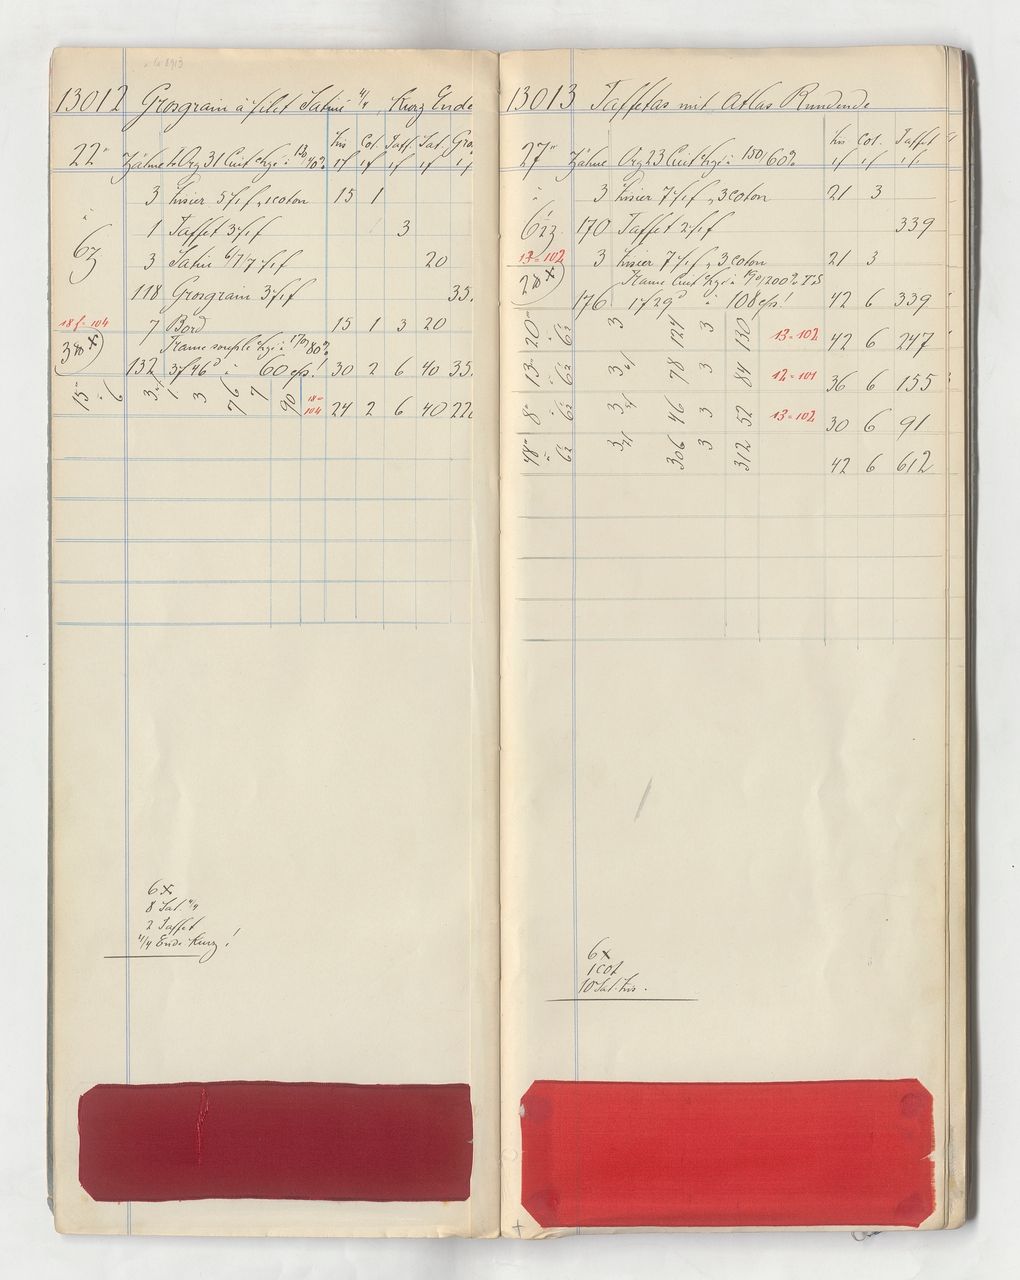 13012 Grosgrain à filet Satiné 4/4, Kurz Ende
lis Col. Taff. Sat. Gro.
22''' Zähne Org 31 Cuit chgé à 130/140%
1f 1f 1f 1f 1f
à 3 Lisier 5 f 1f, 1 coton 15 1
1 Taffet 3 f 1f 3
6½
3 Satin 6/7/7 f 1f 20
118 Grosgrain 3 f 1f 35
18 f = 104
7 Bord 15 1 3 20
38 x
Trame souple chgé à 170/80%
132 3f 46d à 60 cps! 30 2 6 40 35
15''' à 6 3 1 3 76 7 90 18 = 104 24 2 6 40 22
6 x
8 Sat. 4/4
2 Taffet
4/4 Ende Kurz!
13013 Taffetas mit Atlas Rundende
lis Col. Taffet
27''' Zähne Org 23 Cuit chgé à 150/60%
1f 1f 1f
à 3 Lisier 7 f 1f, 3 coton 21 3
6½ 170 Taffet 2 f 1f 339
13 = 102
3 Lisier 7 f 1f, 3 coton 21 3
28 x
Trame Cuit chgé à 190/200% TS
176 1f 29d à 108 cps! 42 6 339
20''' à 6½ 3 124 3 130 13 = 102 42 6 247
13''' à 6½ 3 78 3 84 12 = 101 36 6 155
8''' à 6½ 3 46 3 52 13 = 102 30 6 91
48''' à 6½ 3 306 3 312 42 6 612
6 x
1 cot
10 Sat. Lis.